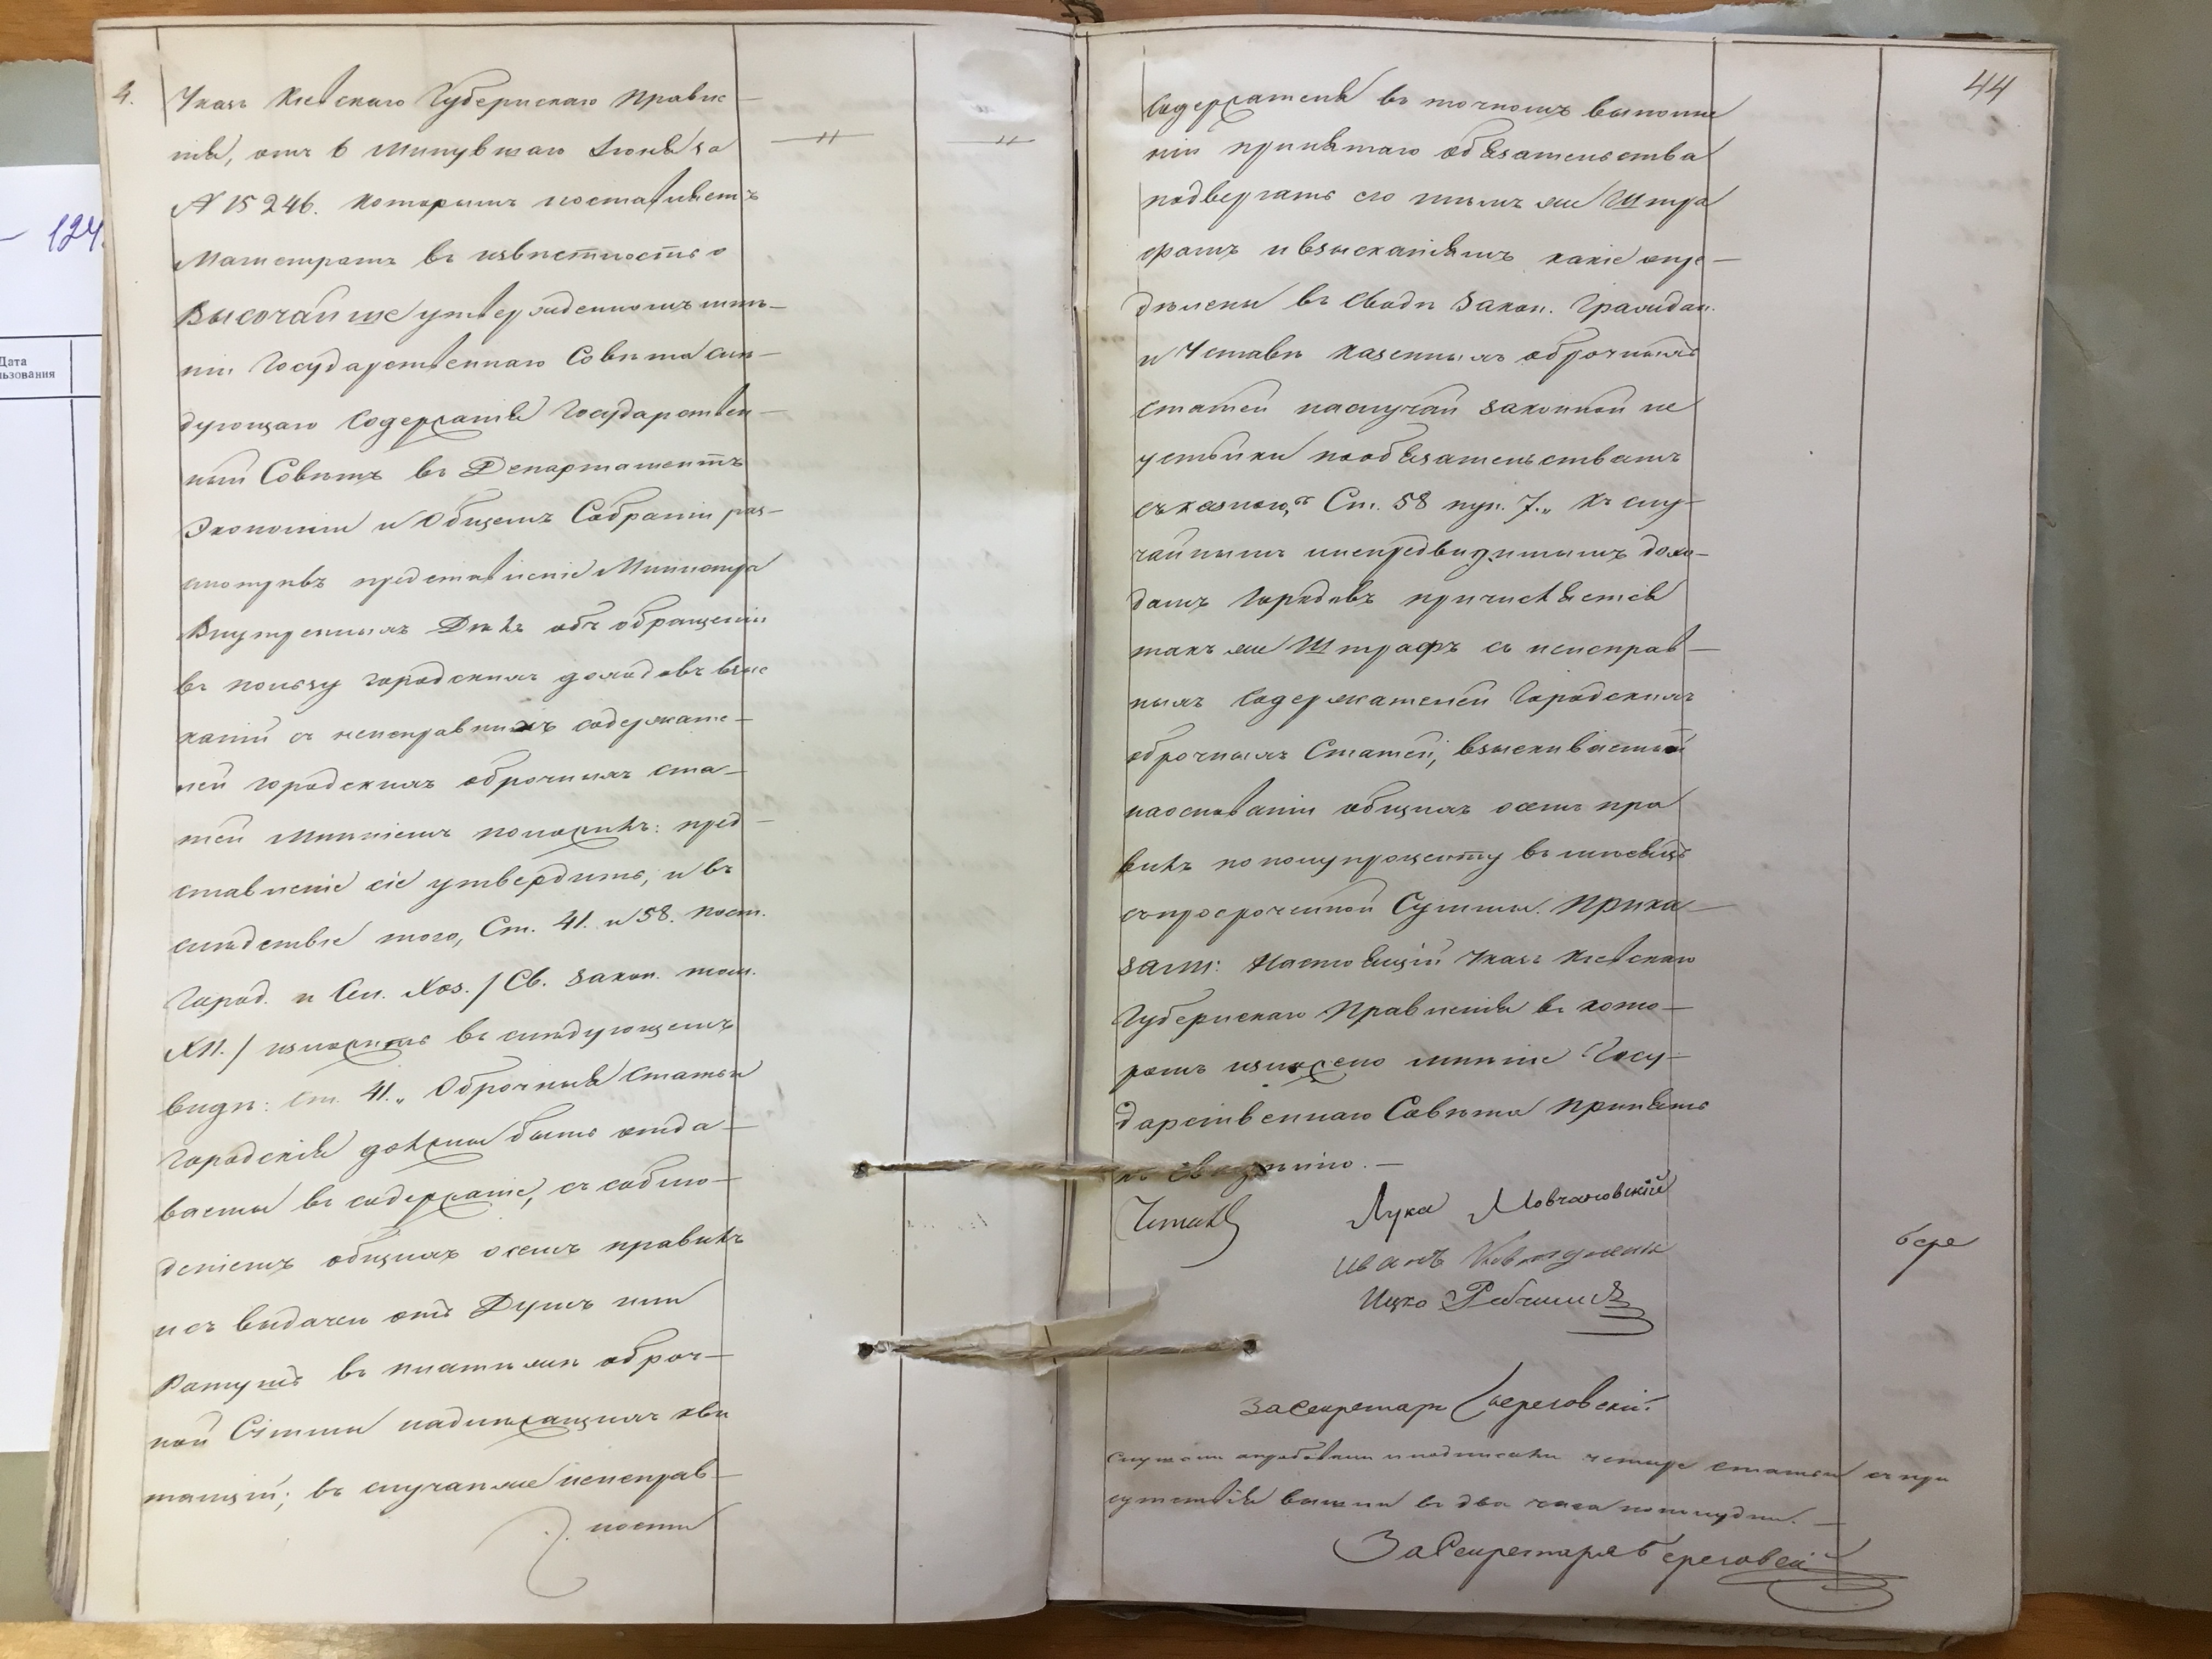 124
Дата
льзования
4.
Указъ Кіевскаго Губернскаго Правле
нія, отъ 6 минувшаго Іюня за
№ 15246. которымъ поставляетъ
Магистратъ въ извѣстность о
Высочайше утвержденномъ мнѣ-
ніи Государственнаго Совѣта слѣ-
дующаго содержанія Государствен-
ный Совѣтъ въ Департаментѣ
Экономіи и Общемъ Собраніи раз-
смотрѣвъ представленіе Министра
Внутреннихъ Дѣлъ объ обращеніи
въ пользу городскихъ доходовъ взыс
каній съ неисправныхъ содержате-
лей городскихъ оброчныхъ ста-
тей мнѣніемъ положилъ: пред-
ставленіе сіе утвердить, и въ
слѣдствіе того, Ст. 41. и 58. пост.
Город. и Сел. Хоз. / Св. Закон. том.
XII. / изложить въ слѣдующемъ
видѣ: Ст. 41. „ Оброчныя статьи
городскія должны быть отда-
ваемы въ содержаніе, съ соблю-
деніемъ общихъ о семъ правилъ
и съ выдачею отъ Думъ или
Ратушъ въ платежѣ оброч-
ной Суммы надлежащихъ кви
танцій; въ случаѣ же неисправ-
ности
44
содержателя въ точномъ выполне
ніи принятаго обязательства
подвергать его тѣмъ же Штра
фамъ и взысканіямъ какіе опре-
дѣлены въ Сводѣ Закон. Граждан.
и Уставѣ казенныхъ оброчныхъ
статей на случай законной не
устойки по обязательствамъ
съ казною," Ст. 58 пун. 7. „ Къ слу-
чайнымъ и непредвидимымъ дохо-
дамъ городовъ причисляется
такъ же Штрафъ съ неисправ-
ныхъ содержателей Городскихъ
оброчныхъ Статей, взыскиваемый
на основаніи общихъ о семъ пра
вилъ по полупроценту въ мѣсяцъ
съ просроченной Суммы. Прика-
зали: Настоящій Указъ Кіевскаго
Губернскаго Правленія въ кото-
ромъ изложено мнѣніе Госу-
дарственнаго Совѣта принять
къ свѣденію. —
Читалъ
Лука Мовчановскій
Иванъ
Ицко
бере
За Секретаря Береговскій.
Слушали апробовали и подписали четыре статьи съ при
сутствія вышли въ два часа пополудни. —
За Секретаря Береговскій